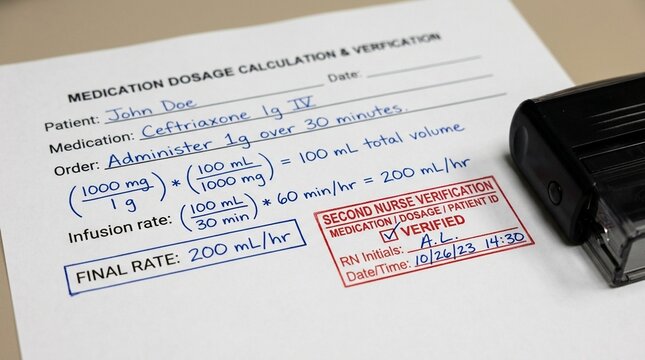 MEDICATION DOSAGE CALCULATION & VERFICATION
Patient: John Doe Date:
Medication: Ceftriaxone 1g IV
Order: Administer 1g over 30 minutes.
(1000 mg / 1 g) * (100 mL / 1000 mg) = 100 mL total volume
Infusion rate: (100 mL / 30 min) * 60 min/hr = 200 mL/hr
FINAL RATE: 200 mL/hr
SECOND NURSE VERIFICATION
MEDICATION / DOSAGE / PATIENT ID
☑ VERIFIED
RN Initials: A.L.
Date/Time: 10/26/23 14:30